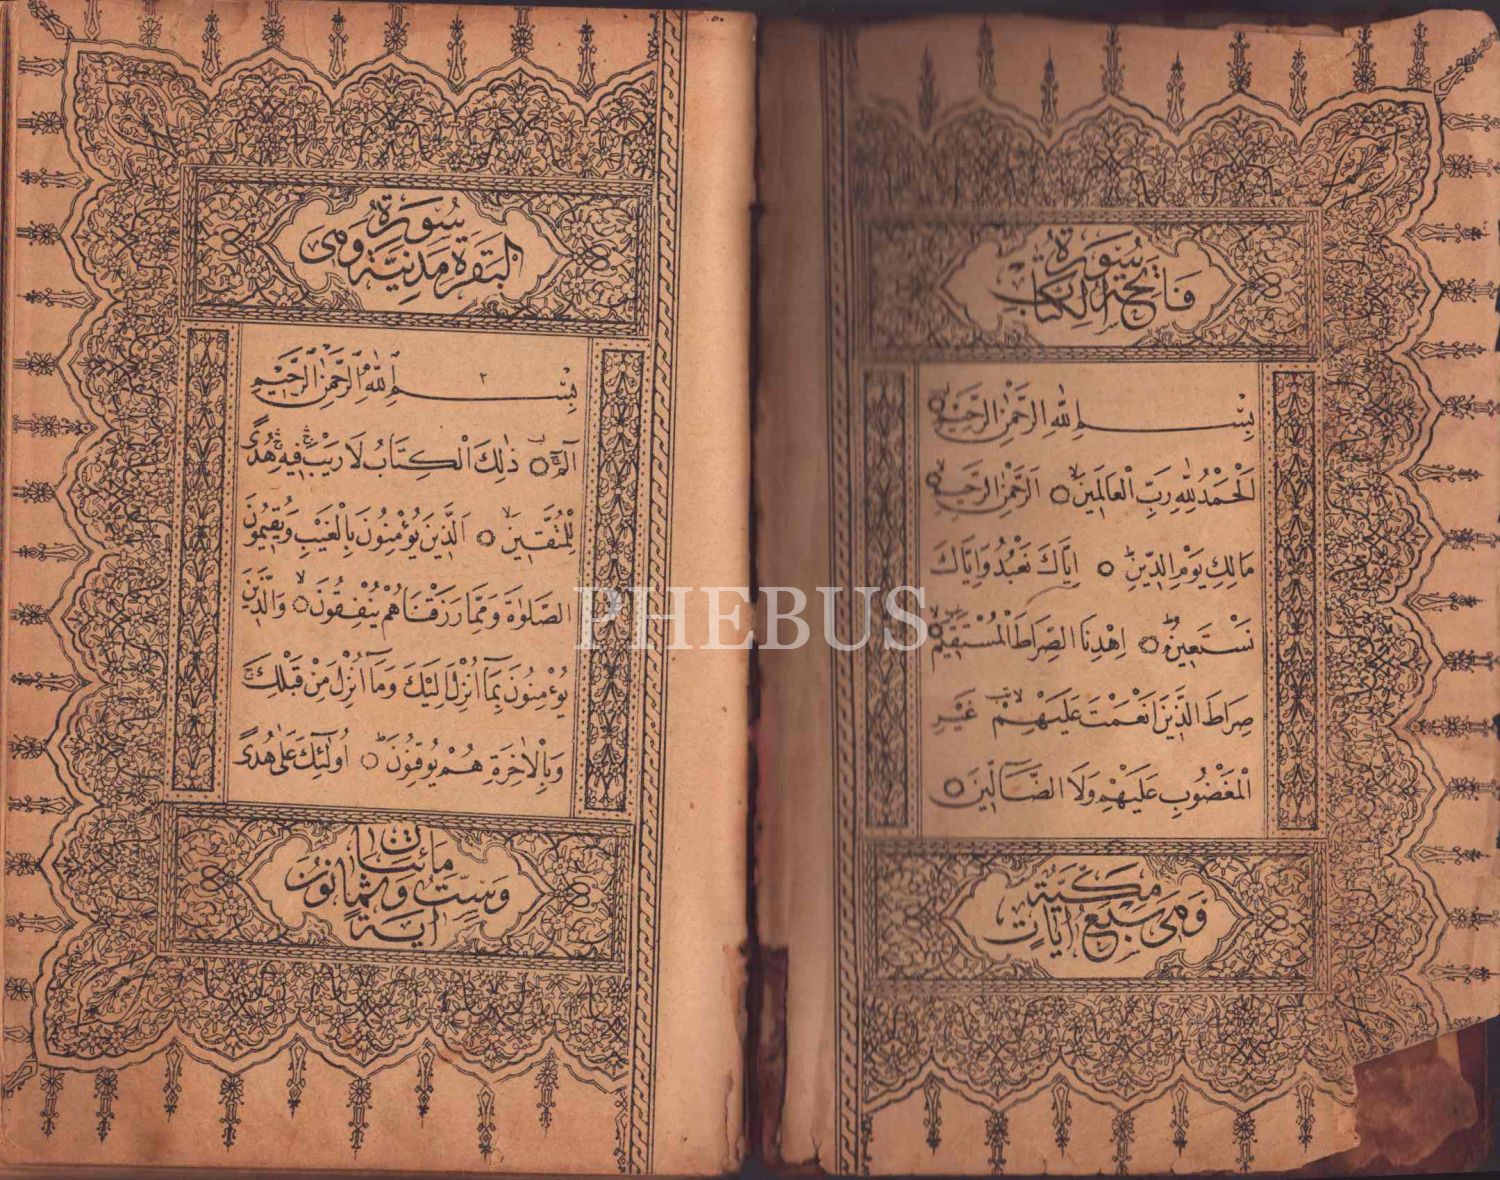 سُورَةُ
فَاتِحَةِ الْكِتَابِ
بِسْمِ اللهِ الرَّحْمٰنِ الرَّحِيمِ
اَلْحَمْدُ لِلّٰهِ رَبِّ الْعَالَمِينَۙ ○ اَلرَّحْمٰنِ الرَّحِيمِۙ ○
مَالِكِ يَوْمِ الدِّينِۜ ○ اِيَّاكَ نَعْبُدُ وَاِيَّاكَ
نَسْتَعِينُۜ ○ اِهْدِنَا الصِّرَاطَ الْمُسْتَقِيمَۙ ○
صِرَاطَ الَّذِينَ اَنْعَمْتَ عَلَيْهِمْۙ غَيْرِ
الْمَغْضُوبِ عَلَيْهِمْ وَلَا الضَّٓالِّينَ ○
مَكِّيَّةٌ
وَهِيَ سَبْعُ اٰيَاتٍ
سُورَةُ
الْبَقَرَةِ مَدَنِيَّةٌ وَهِيَ
٢
بِسْمِ اللهِ الرَّحْمٰنِ الرَّحِيمِ
الٓمٓ ○ ذٰلِكَ الْكِتَابُ لَا رَيْبَۚ فِيهِۚ هُدًى
لِلْمُتَّقِينَۙ ○ اَلَّذِينَ يُؤْمِنُونَ بِالْغَيْبِ وَيُقِيمُونَ
الصَّلٰوةَ وَمِمَّا رَزَقْنَاهُمْ يُنْفِقُونَۙ ○ وَالَّذِينَ
يُؤْمِنُونَ بِمَٓا اُنْزِلَ اِلَيْكَ وَمَٓا اُنْزِلَ مِنْ قَبْلِكَۚ
وَبِالْاٰخِرَةِ هُمْ يُوقِنُونَۜ ○ اُولٰٓئِكَ عَلٰى هُدًى
مِائَتَانِ
وَسِتٌّ وَثَمَانُونَ
اٰيَةً
PHEBUS